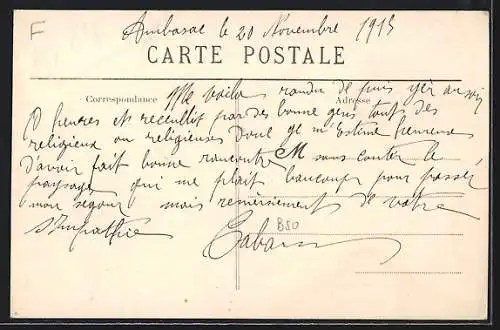 F
Ambasac le 20 Novembre 1915
CARTE POSTALE
Correspondance
Adresse
Me voila randu de puis yèr au soir
10 heures et receullit par des bonne gens tout des
religieux ou religieuses Dont je m'Estime heureuse
D'avoir fait bonne rancontre M sans conter le
paysage qui me plait beaucoup pour passér
mon segour mais remersiement de votre
simpathie
B50
Cabar